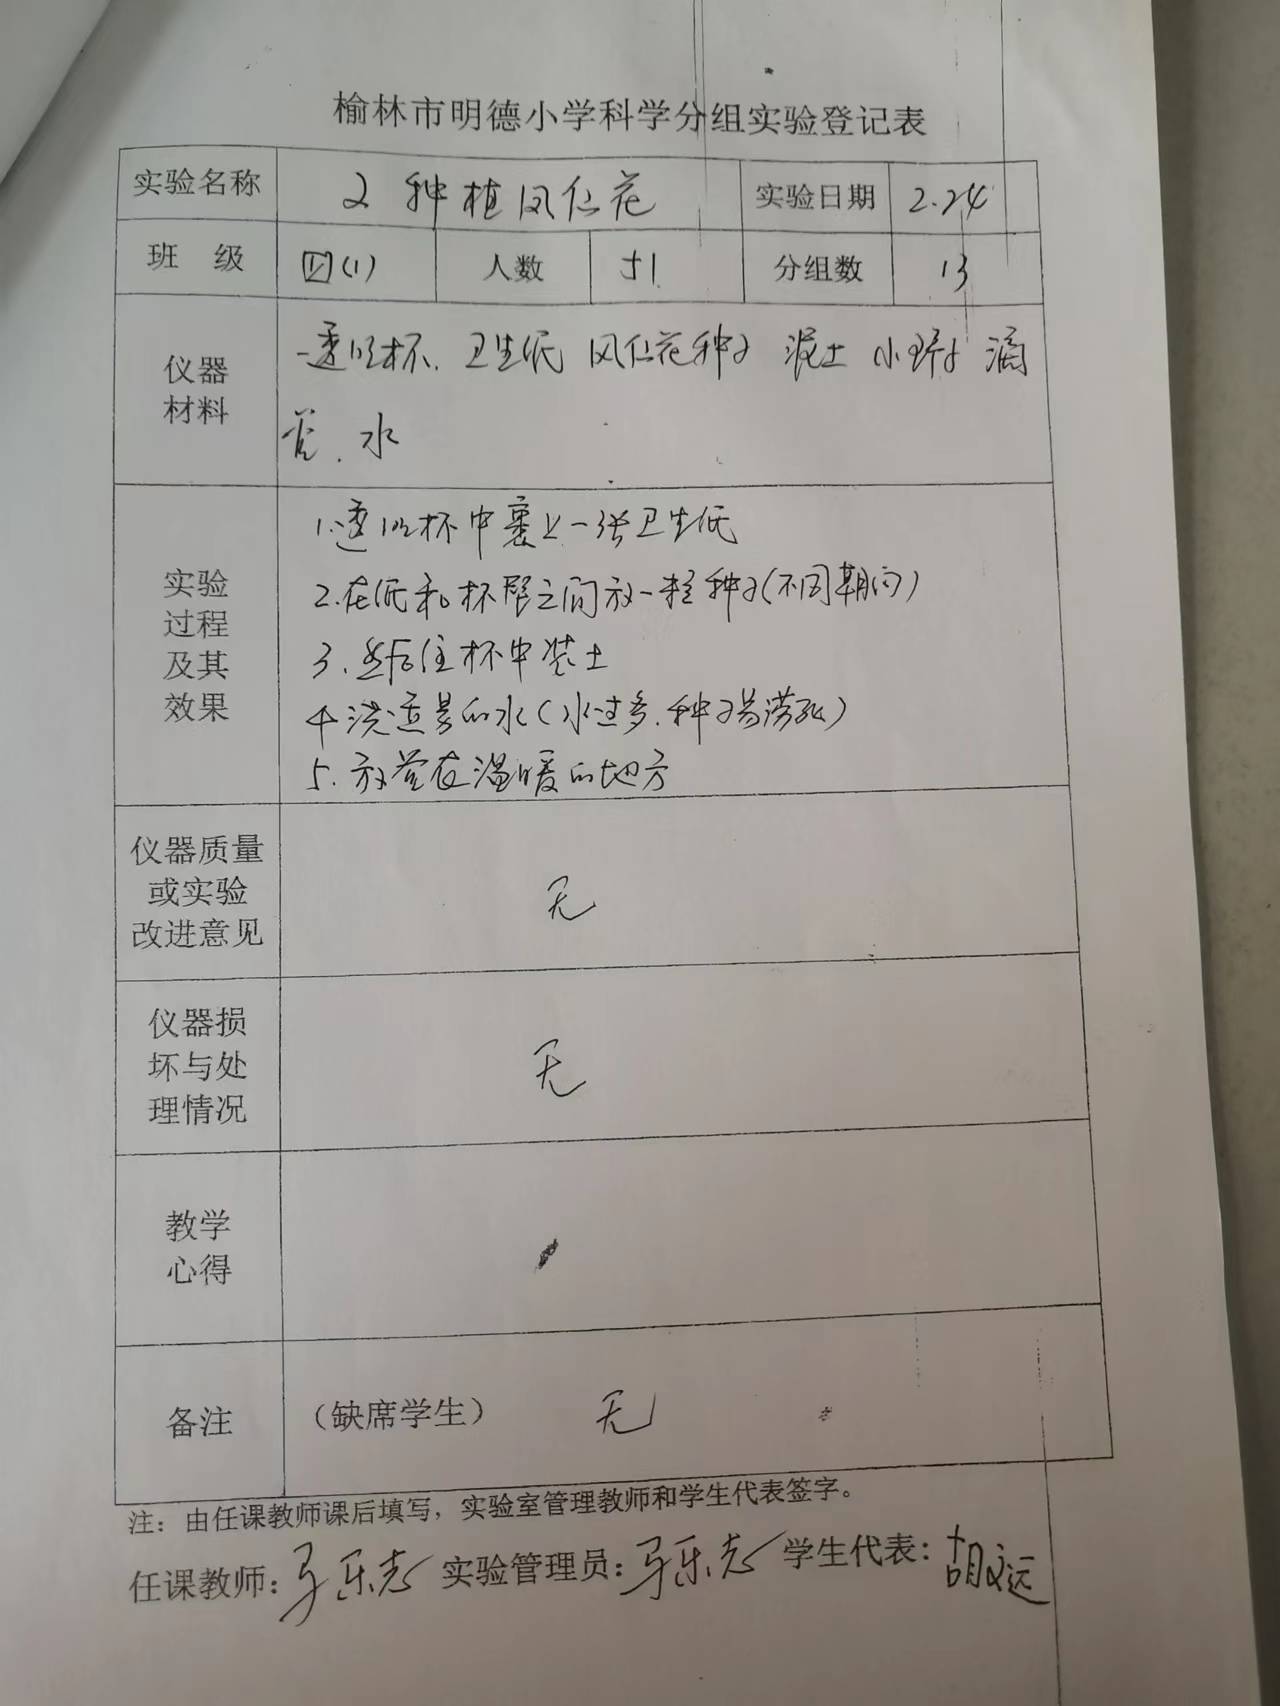 榆林市明德小学科学分组实验登记表
实验名称 2 种植凤仙花 实验日期 2.24
班 级 四(1) 人数 51 分组数 13
仪器
材料
透明杯、卫生纸 凤仙花种子 泥土 小铲子 滴
管、水
实验
过程
及其
效果
1.透明杯中裹上一张卫生纸
2.在纸和杯壁之间放一粒种子(不同朝向)
3.然后往杯中装土
4 浇适量的水(水过多,种子易涝死)
5.放置在温暖的地方
仪器质量
或实验
改进意见
无
仪器损
坏与处
理情况
无
教学
心得
备注 (缺席学生) 无
注：由任课教师课后填写，实验室管理教师和学生代表签字。
任课教师:马乐志 实验管理员:马乐志 学生代表:胡文远